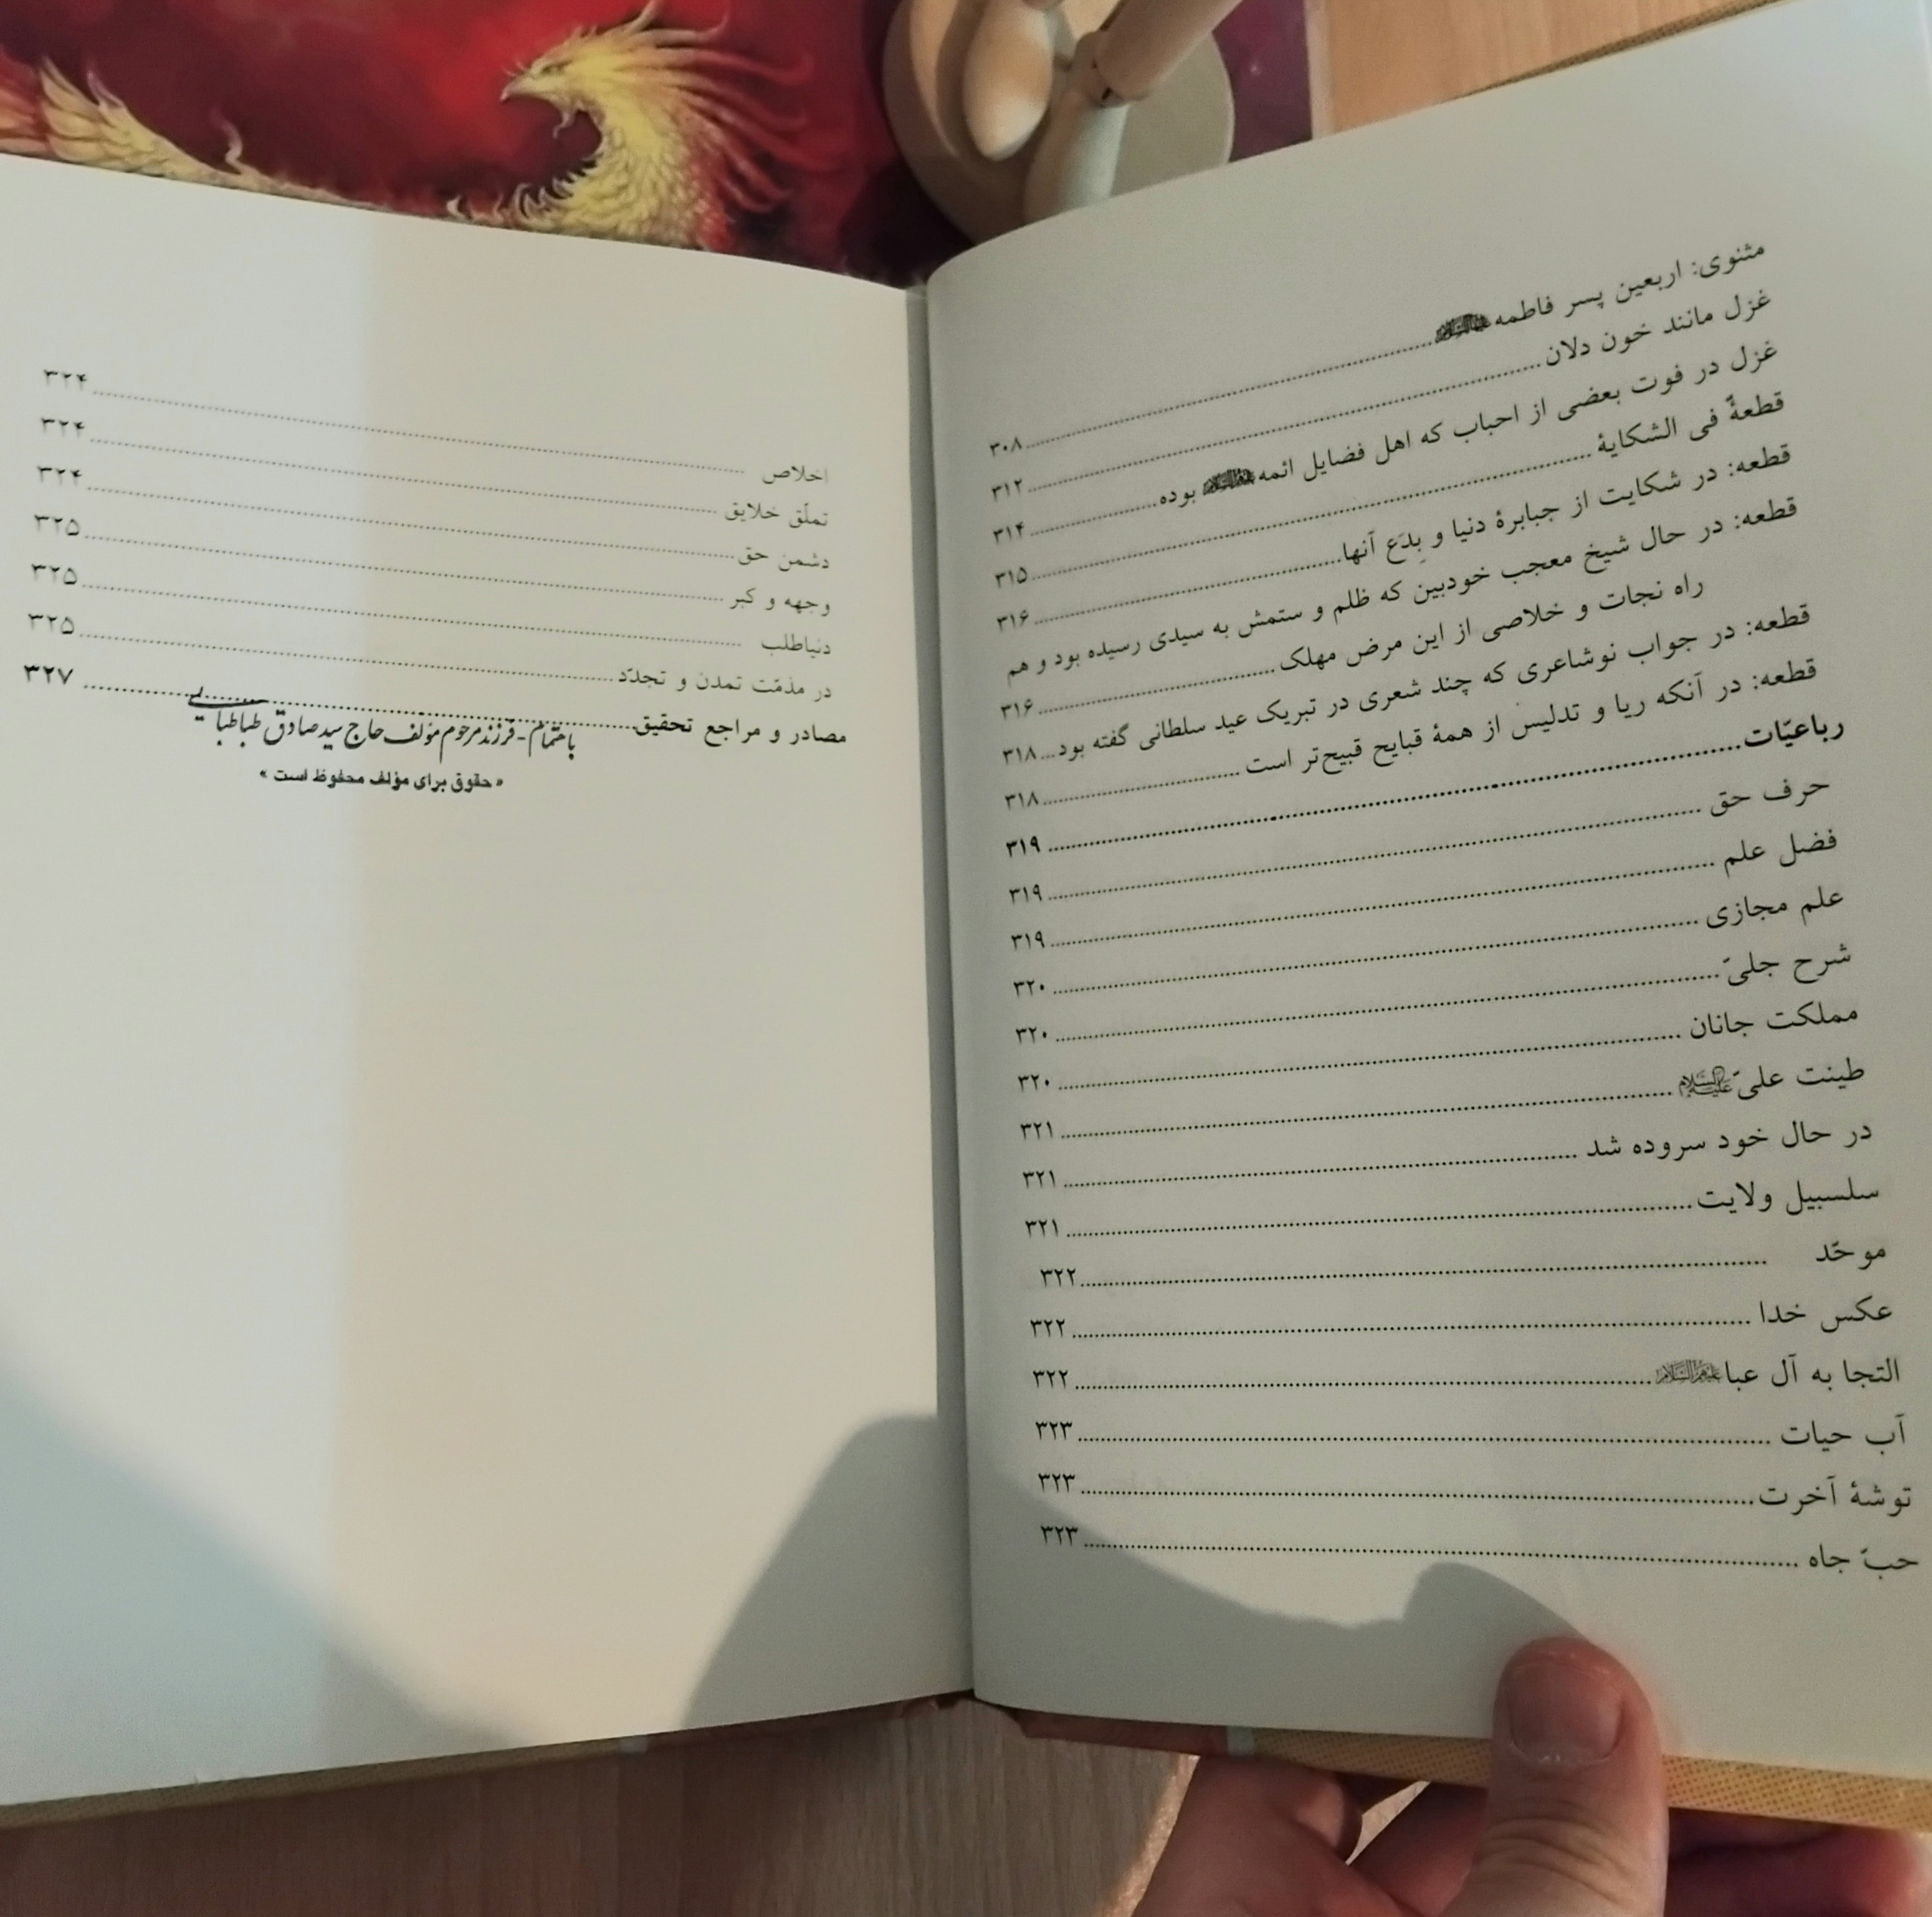 مثنوی: اربعین پسر فاطمه ........ ۳۰۸
غزل مانند خون دلان ........ ۳۱۲
غزل در فوت بعضی از احباب که اهل فضایل ائمه بوده ........ ۳۱۴
قطعةٌ فی الشکایة ........ ۳۱۵
قطعه: در شکایت از جبابرهٔ دنیا و بِدَع آنها ........ ۳۱۶
قطعه: در حال شیخ معجب خودبین که ظلم و ستمش به سیدی رسیده بود و هم
راه نجات و خلاصی از این مرض مهلک ........ ۳۱۶
قطعه: در جواب نوشاعری که چند شعری در تبریک عید سلطانی گفته بود ... ۳۱۸
قطعه: در آنکه ریا و تدلیس از همهٔ قبایح قبیح‌تر است ........ ۳۱۸
رباعیّات ........ ۳۱۹
حرف حق ........ ۳۱۹
فضل علم ........ ۳۱۹
علم مجازی ........ ۳۲۰
شرح جلیّ ........ ۳۲۰
مملکت جانان ........ ۳۲۰
طینت علیّ علیه‌السلام ........ ۳۲۱
در حال خود سروده شد ........ ۳۲۱
سلسبیل ولایت ........ ۳۲۱
موحّد ........ ۳۲۲
عکس خدا ........ ۳۲۲
التجا به آل عبا علیهم‌السلام ........ ۳۲۲
آب حیات ........ ۳۲۳
توشهٔ آخرت ........ ۳۲۳
حبّ جاه ........ ۳۲۳
اخلاص ........ ۳۲۴
تملّق خلایق ........ ۳۲۴
دشمن حق ........ ۳۲۴
وجهه و کبر ........ ۳۲۵
دنیاطلب ........ ۳۲۵
در مذمّت تمدن و تجدّد ........ ۳۲۵
مصادر و مراجع تحقیق ........ ۳۲۷
باهتمام - فرزند مرحوم مؤلف حاج سید صادق طباطبایی
« حقوق برای مؤلف محفوظ است »